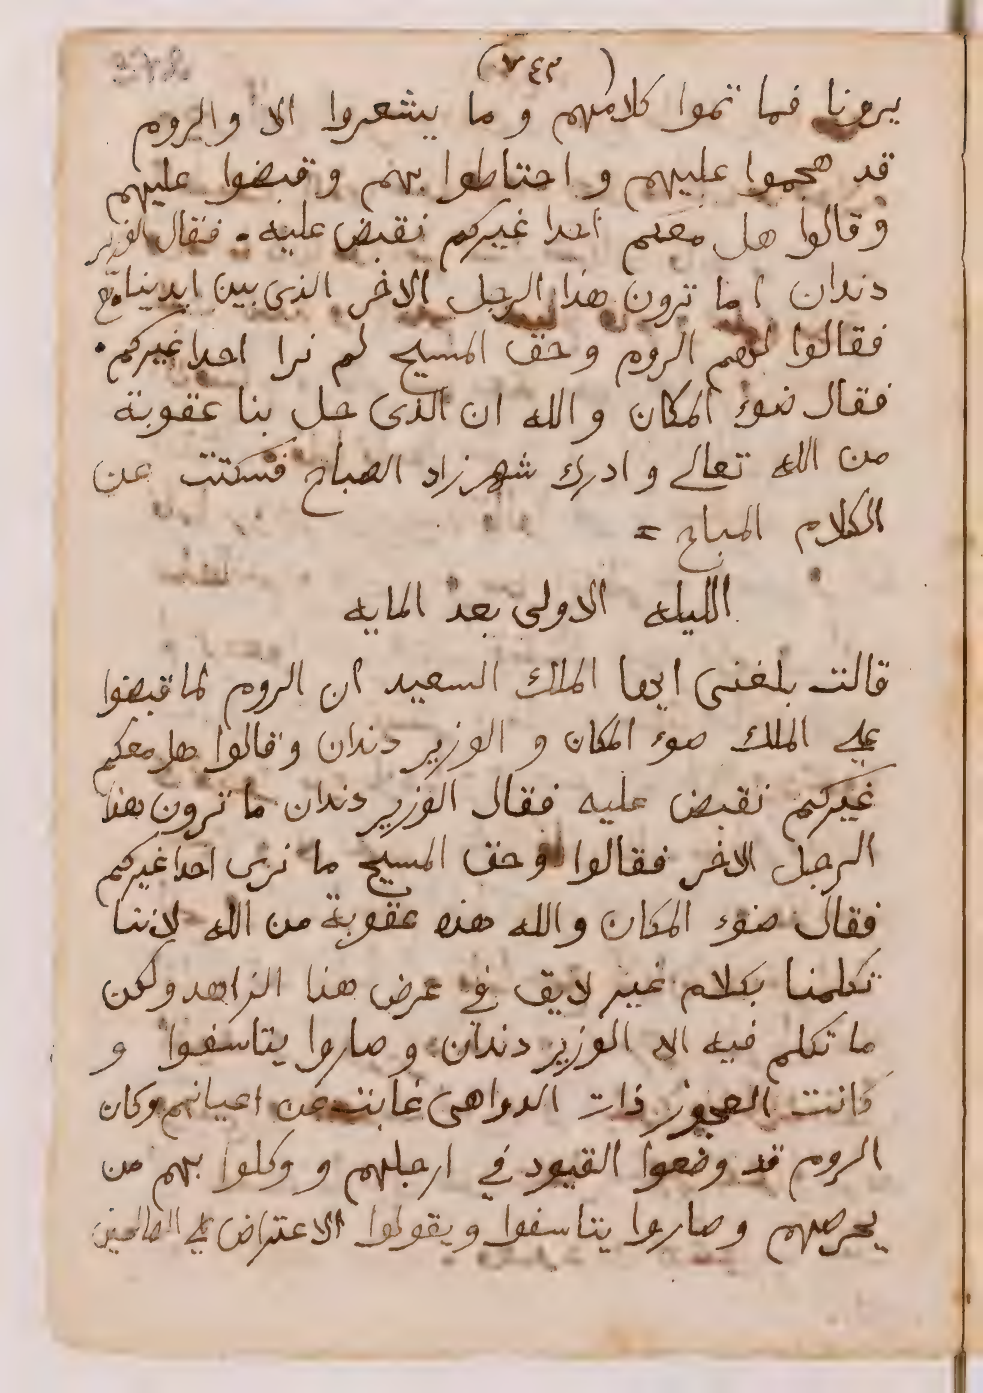 (٧٤٣)
يرونا فما تموا كلامهم و ما يشعروا الا والروم
قد هجموا عليهم و احتاطوا بهم و قبضوا عليهم
وقالوا هل معكم احدا غيركم نقبض عليه . فقال الوزير
دندان اما ترون هذا الرجل الاخر الذى بين ايدينا
فقالوا لهم الروم و حق المسيح لم نرا احدا غيركم .
فقال ضوء المكان و الله ان الذى حل بنا عقوبة
من الله تعالى و ادرك شهرزاد الصباح فسكتت عن
الكلام المباح =
الليله الاولى بعد المايه
قالت بلغنى ايها الملك السعيد ان الروم لما قبضوا
على الملك ضوء المكان و الوزير دندان وقالوا هل معكم
غيركم نقبض عليه فقال الوزير دندان ما ترون هذا
الرجل الاخر فقالوا وحق المسيح ما نرى احدا غيركم
فقال ضوء المكان والله هذه عقوبة من الله لاننا
تكلمنا بكلام غير لايق في عرض هذا الزاهد ولكن
ما تكلم فيه الا الوزير دندان و صاروا يتاسفوا و
كانت العجوز ذات الدواهى غابت عن اعيانهم وكان
الروم قد وضعوا القيود في ارجلهم و وكلوا بهم من
يحرصهم و صاروا يتاسفوا و يقولوا الاعتراض على الصالحين